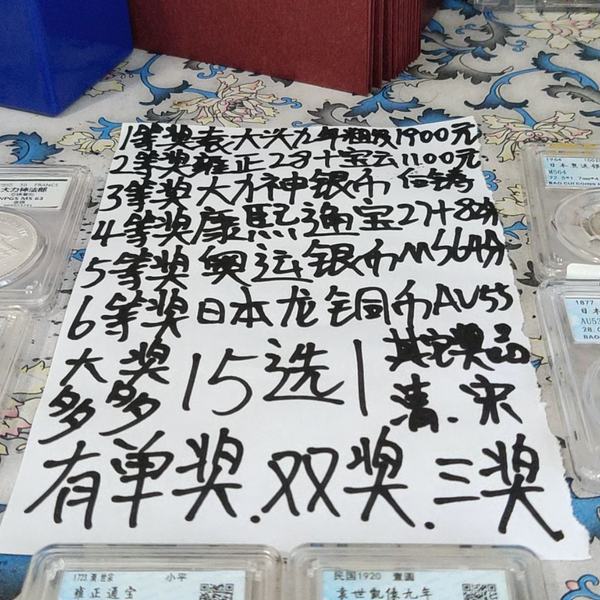 1等奖袁大头九年粗发1900元
2等奖雍正27+宝云1100元
3等奖大力神银币
4等奖康熙通宝27+82分
5等奖奥运银币MS64分
6等奖日本龙铜币AU55
大奖多多 15选1 其它奖品清.宋
有单奖.双奖.三奖
50 FRANCS
大力神法郎
MS 63
MS64
1877
日本
1723
小平
雍正通宝
民国1920 壹圆
袁世凯像九年